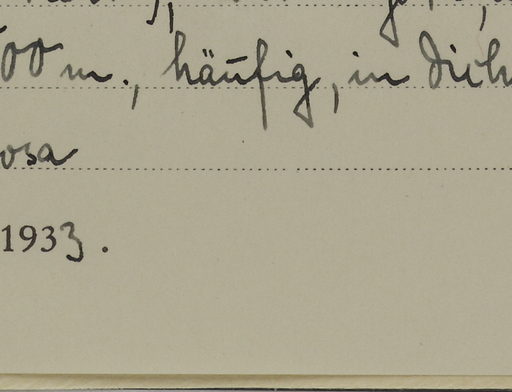 00 m., häufig, in
osa
1933.